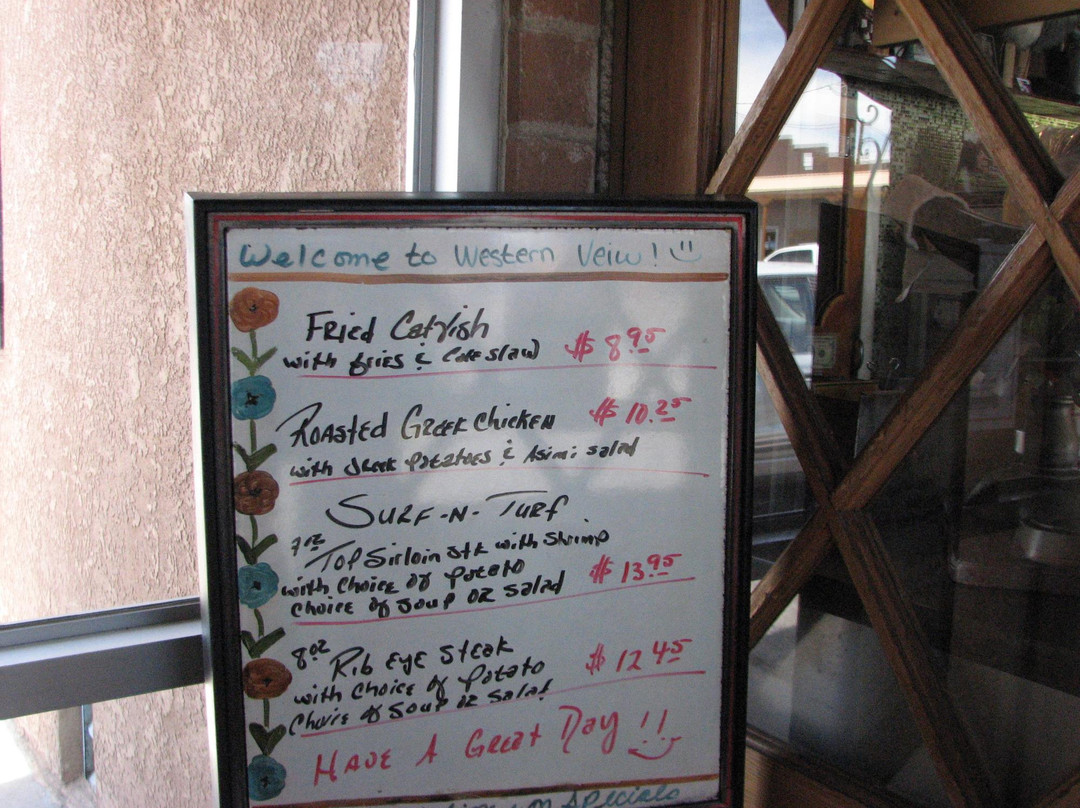 Welcome to Western Veiw!
Fried Catfish
with fries & Coleslaw $ 8.95
Roasted Greek Chicken $ 10.25
with Greek Potatoes & Asimi Salad
Surf-N-Turf
7oz Top Sirloin Stk with Shrimp
with Choice of Potato $ 13.95
Choice of Soup or Salad
8oz Rib Eye Steak $ 12.45
with Choice of Potato
Choice of Soup or Salad
Have A Great Day !!
Specials